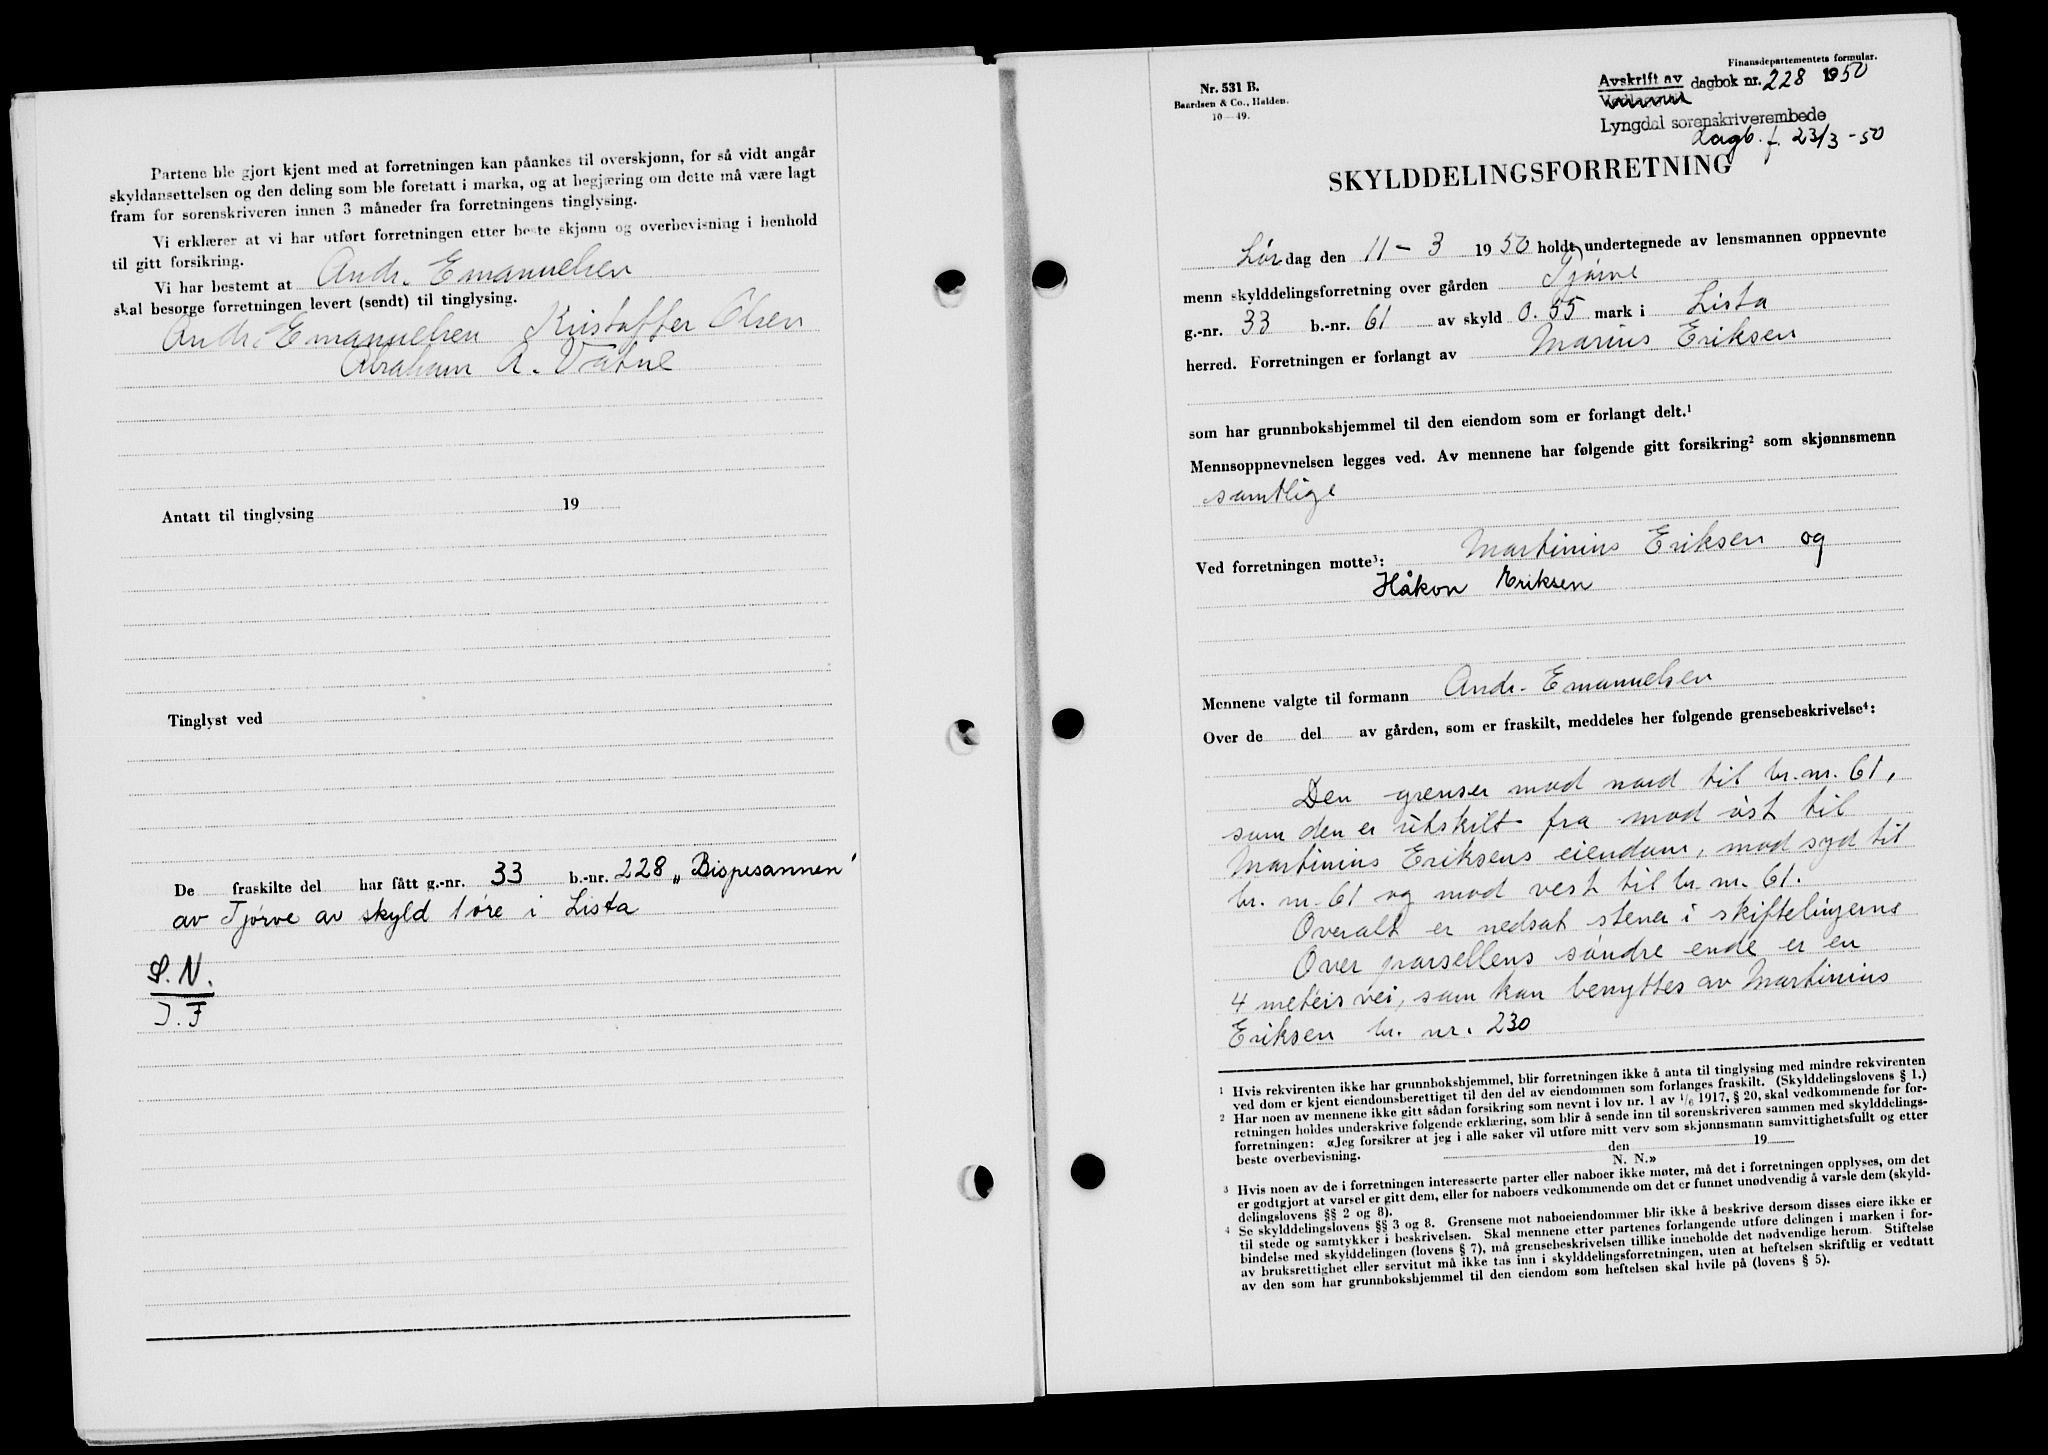 Partene ble gjort kjent med at forretningen kan påankes til overskjønn, for så vidt angår
skyldansettelsen og den deling som ble foretatt i marka, og at begjæring om dette må være lagt
fram for sorenskriveren innen 3 måneder fra forretningens tinglysing.
Vi erklærer at vi har utført forretningen etter beste skjønn og overbevisning i henhold
til gitt forsikring.
Vi har bestemt at Andr. Emanuelsen
skal besørge forretningen levert (sendt) til tinglysing.
Andr. Emanuelsen Kristoffer Olsen
Abraham A. Vatne
Antatt til tinglysing 19
Tinglyst ved
De fraskilte del har fått g.-nr. 33 b.-nr. 228 „Bispesannen"
av Tjørve av skyld 1 øre i Lista
S. N.
J. F
Finansdepartementets formular.
Nr. 531 B.
Baardsen & Co., Halden.
10—49.
Avskrift av dagbok nr. 228 1950
Lyngdal sorenskriverembede
Dagb. f. 23/3-50
SKYLDDELINGSFORRETNING
Lørdag den 11-3 1950 holdt undertegnede av lensmannen oppnevnte
menn skylddelingsforretning over gården Tjørve
g.-nr. 33 b.-nr. 61 av skyld 0.55 mark i Lista
herred. Forretningen er forlangt av Marius Eriksen
som har grunnbokshjemmel til den eiendom som er forlangt delt.¹
Mennsoppnevnelsen legges ved. Av mennene har følgende gitt forsikring² som skjønnsmenn
samtlige
Ved forretningen møtte³: Martinius Eriksen og
Håkon Eriksen
Mennene valgte til formann Andr. Emanuelsen
Over de del av gården, som er fraskilt, meddeles her følgende grensebeskrivelse⁴:
Den grenser mod nord til br. nr. 61,
som den er utskilt fra mod øst til
Martinius Eriksens eiendom, mod syd til
br. nr. 61 og mod vest til br. nr. 61.
Overalt er nedsat stener i skiftelingerne
Over parsellens søndre ende er en
4 meters vei, som kan benyttes av Martinius
Eriksen br. nr. 230
¹ Hvis rekvirenten ikke har grunnbokshjemmel, blir forretningen ikke å anta til tinglysing med mindre rekvirenten
ved dom er kjent eiendomsberettiget til den del av eiendommen som forlanges fraskilt. (Skylddelingslovens § 1.)
² Har noen av mennene ikke gitt sådan forsikring som nevnt i lov nr. 1 av 1/6 1917, § 20, skal vedkommende før for-
retningen holdes underskrive følgende erklæring, som blir å sende inn til sorenskriveren sammen med skylddelings-
forretningen: «Jeg forsikrer at jeg i alle saker vil utføre mitt verv som skjønnsmann samvittighetsfullt og etter
beste overbevisning. den 19
N. N.»
³ Hvis noen av de i forretningen interesserte parter eller naboer ikke møter, må det i forretningen opplyses, om det
er godtgjort at varsel er gitt dem, eller for naboers vedkommende om det er funnet unødvendig å varsle dem (skyld-
delingslovens §§ 2 og 8).
⁴ Se skylddelingslovens §§ 3 og 8. Grensene mot naboeiendommer blir ikke å beskrive dersom disses eiere ikke er
til stede og samtykker i beskrivelsen. Skal mennene etter partenes forlangende utføre delingen i marken i for-
bindelse med skylddelingen (lovens § 7), må grensebeskrivelsen tillike inneholde det nødvendige herom. Stiftelse
av bruksrettighet eller servitut må ikke tas inn i skylddelingsforretningen, uten at heftelsen skriftlig er vedtatt
av den som har grunnbokshjemmel til den eiendom som heftelsen skal hvile på (lovens § 5).